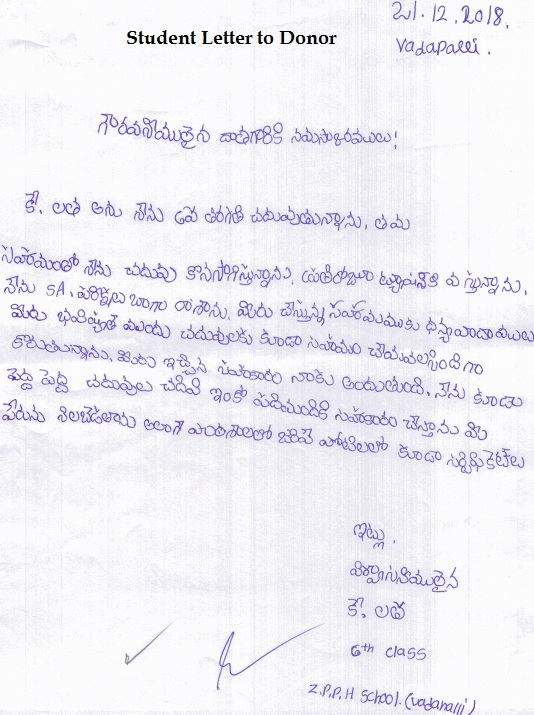 21.12.2018.
Student Letter to Donor
Vadapalli.
గౌరవనీయులైన దాతగారికి నమస్కారములు!
కే. లత అను నేను 6వ తరగతి చదువుతున్నాను. తమ
సహాయంతో నేను చదువు కొనసాగిస్తున్నాను. ప్రతిరోజూ ట్యూషన్‌కి వస్తున్నాను.
నేను SA, పరీక్షలు బాగా రాశాను. మీరు చేస్తున్న సహాయముకు ధన్యవాదాములు
మీరు భవిష్యత్ ముందు చదువులకు కూడా సహాయం చేయవలసిందిగా
కోరుతున్నాను. మీరు ఇచ్చిన సహాకారం నాకు అందుతుంది. నేను కూడా
పెద్ద పెద్ద చదువులు చదివి ఇంకో పదిమందికి సహకారం చేస్తాను మీ
పేరును నిలబెడతాను అలాగే పాఠశాలలో జరిపే పోటీలలో కూడా సర్టిఫికెట్‌లు
ఇట్లు.
విశ్వాసనీయులైన
కే. లత
6th class
Z.P.P.H School.(vadapalli)